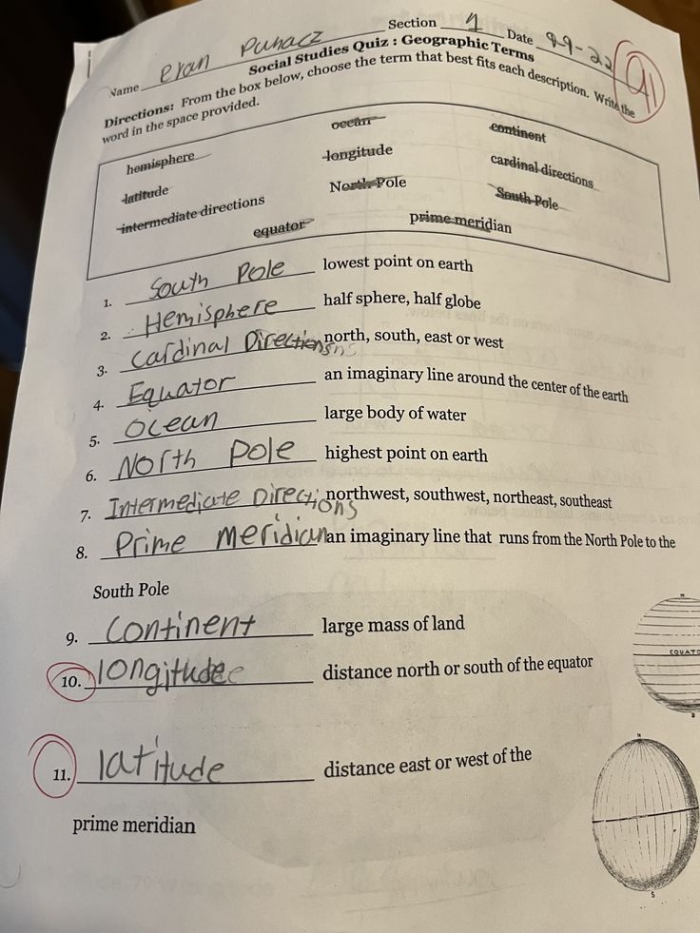 Section 1 Date 9-9-22 91
Name eran Puhacz
Social Studies Quiz : Geographic Terms
Directions: From the box below, choose the term that best fits each description. Write the
word in the space provided.
hemisphere ocean continent
latitude longitude cardinal directions
intermediate directions North Pole South Pole
equator prime meridian
1. South Pole lowest point on earth
2. Hemisphere half sphere, half globe
3. Cardinal Directions north, south, east or west
4. Equator an imaginary line around the center of the earth
5. Ocean large body of water
6. North Pole highest point on earth
7. Intermediate Directions northwest, southwest, northeast, southeast
8. Prime meridian an imaginary line that runs from the North Pole to the
South Pole
9. Continent large mass of land
10. longitude distance north or south of the equator
11. latitude distance east or west of the
prime meridian
N
EQUATO
S
N
S